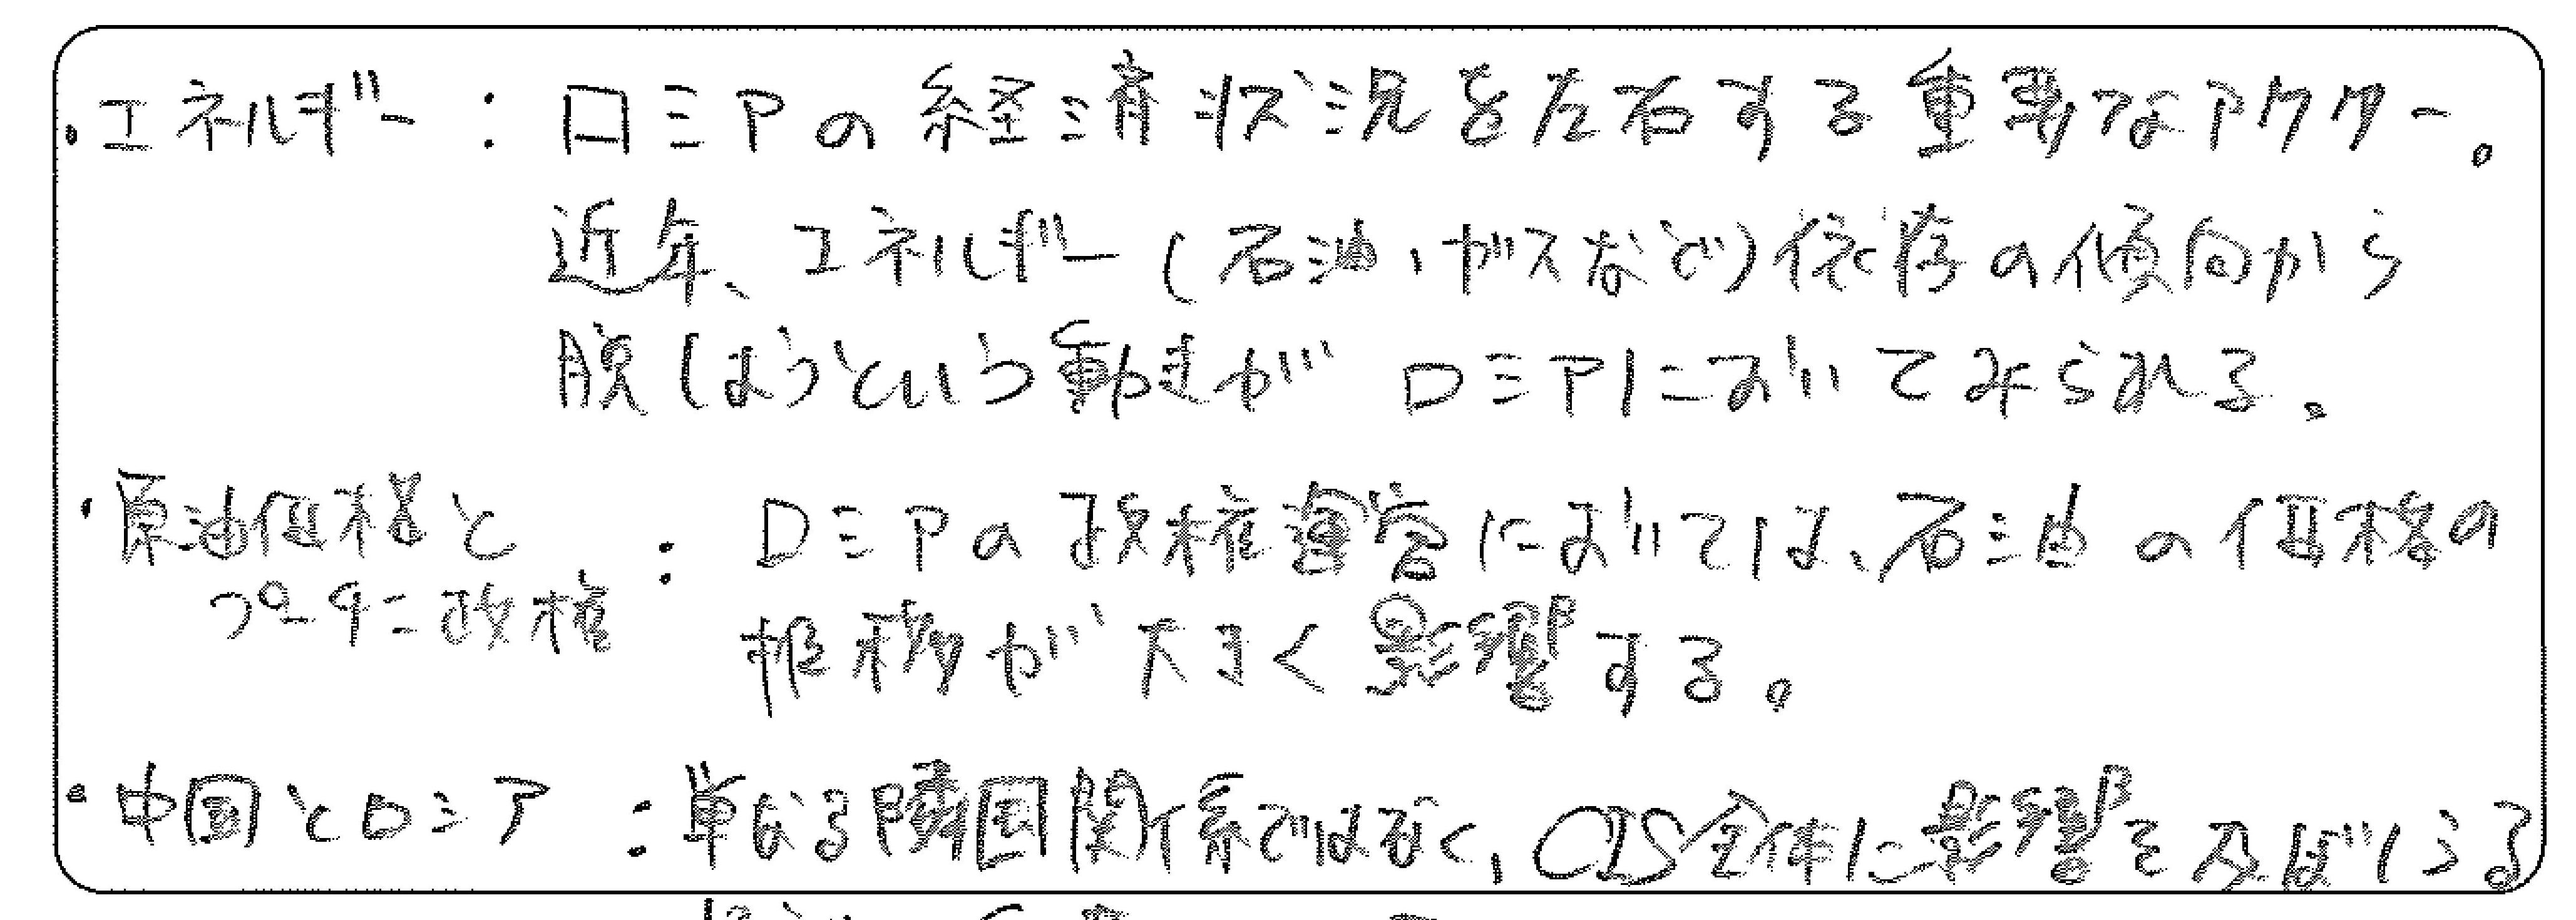 ・エネルギー：ロシアの経済状況を左右する重要なアクター。
近年、エネルギー(石油、ガスなど)依存の傾向から
脱しようという動きがロシアにおいてみられる。
・原油価格と
プーチン政権
：ロシアの政権運営においては、石油の価格の
推移が大きく影響する。
・中国とロシア：単なる隣国関係ではなく、CIS全体に影響を及ぼしうる